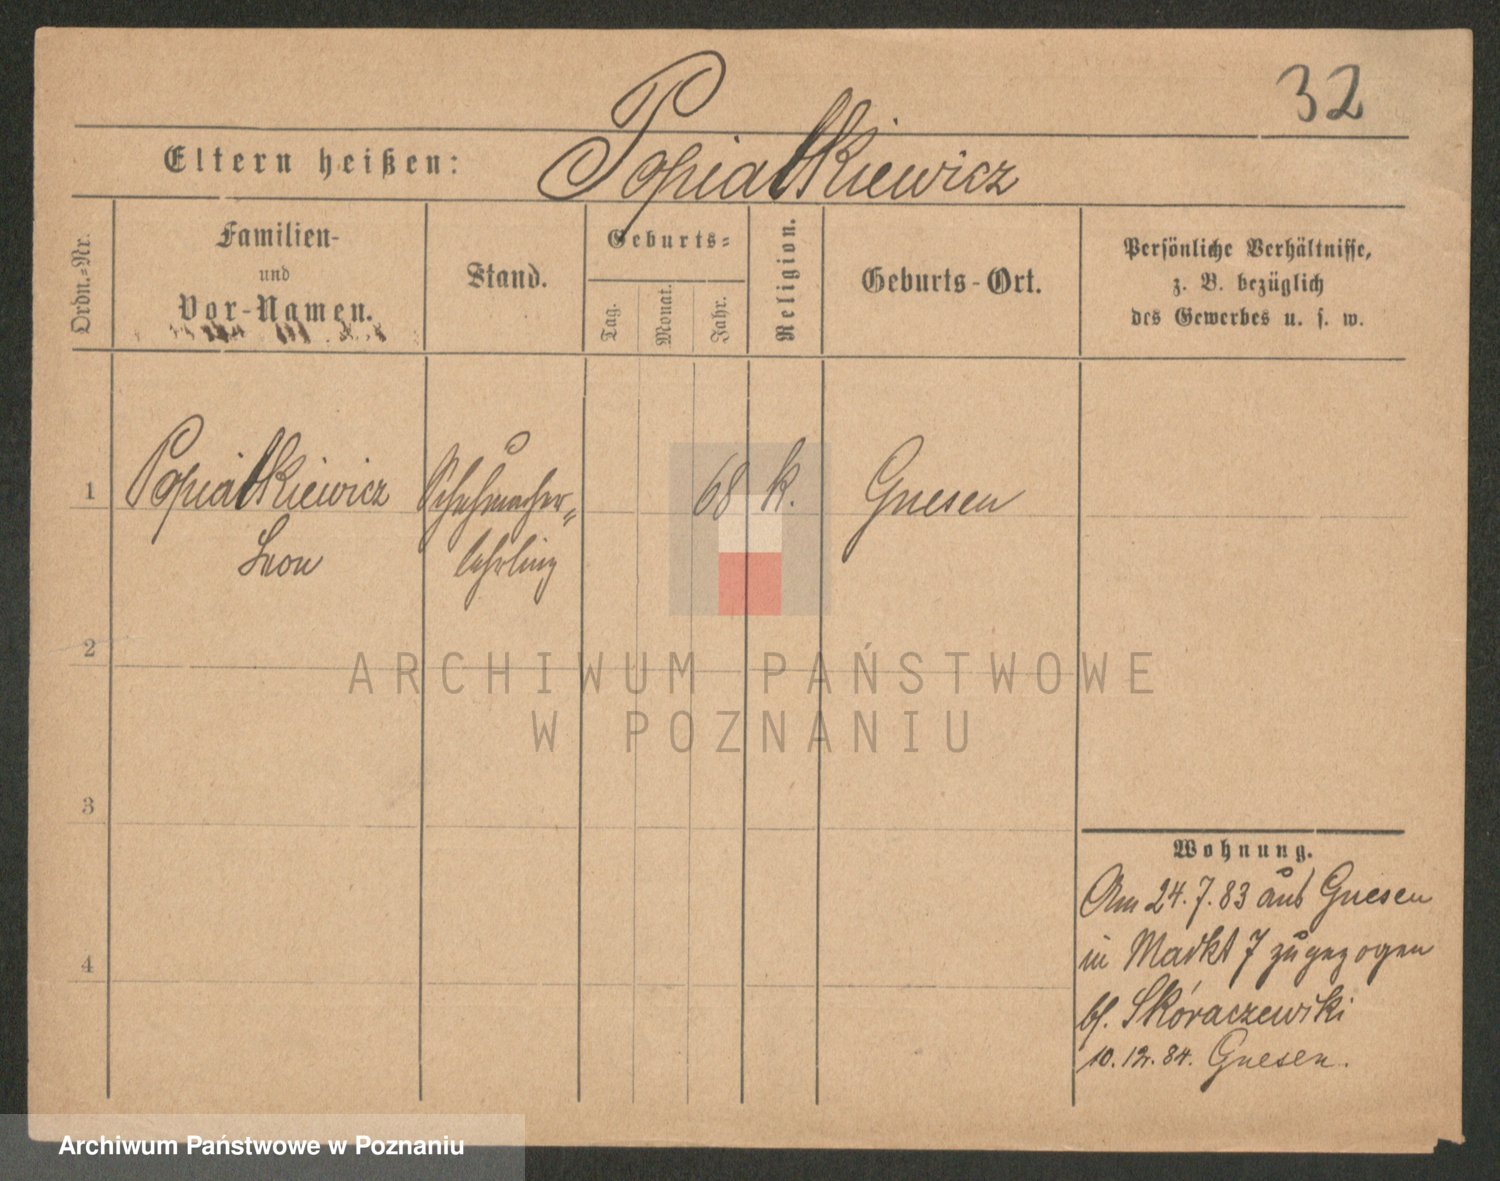 32
Popiatkiewicz
Eltern heißen:
Ordn.-Nr.
Familien-
und
Vor-Namen.
Stand.
Geburts-
Tag.
Monat.
Jahr.
Religion.
Geburts-Ort.
Persönliche Verhältnisse,
z. B. bezüglich
des Gewerbes u. s. w.
1
Popiatkiewicz
Leon
Schuhmacher-
lehrling
68
k.
Gnesen
2
3
4
ARCHIWUM PAŃSTWOWE
W POZNANIU
Wohnung.
Am 24.7.83 aus Gnesen
in Markt 7 zugezogen
bf. Skóraczewski
10.12.84. Gnesen.
Archiwum Państwowe w Poznaniu